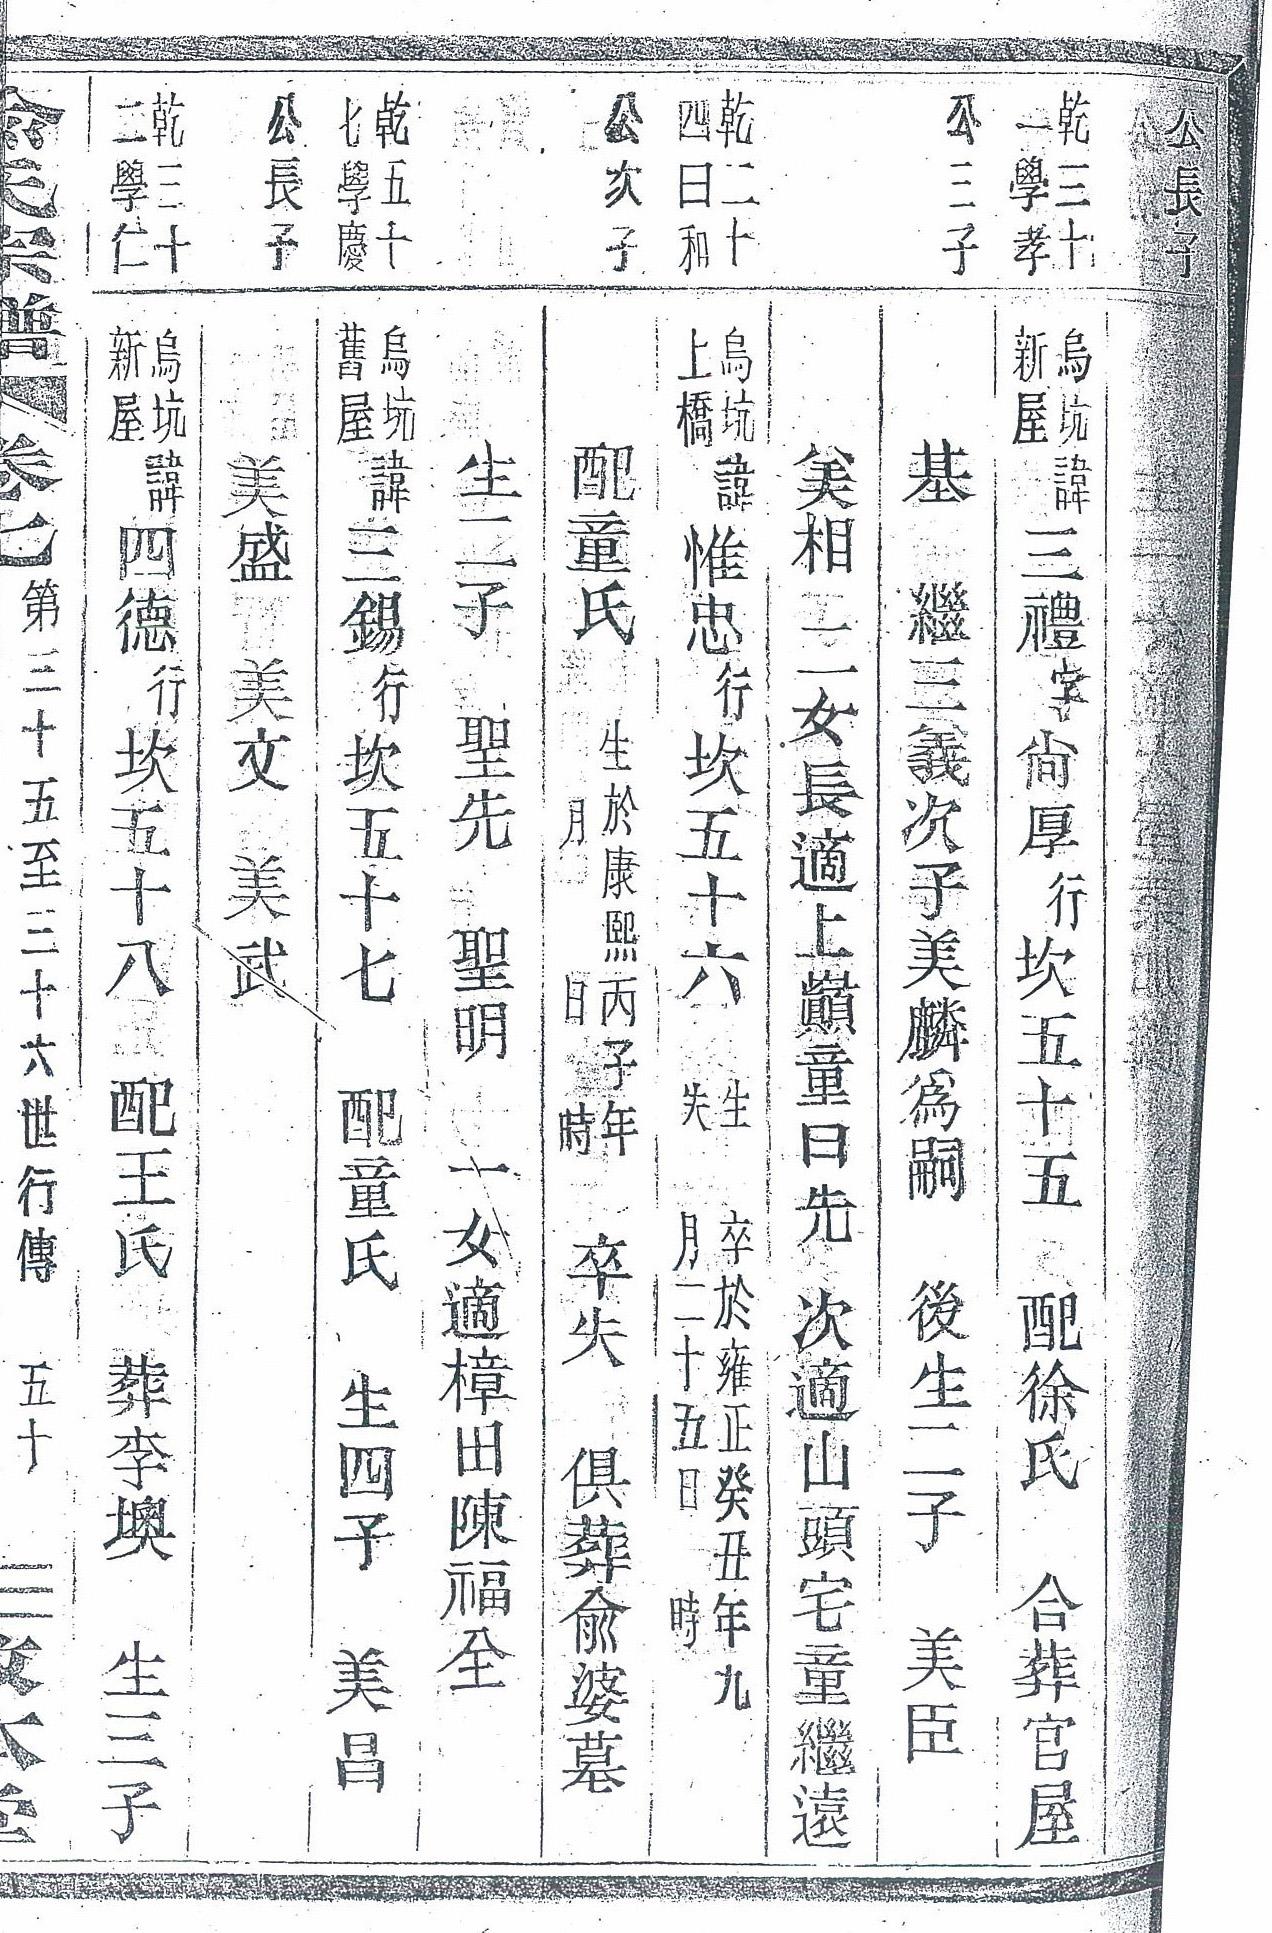 公長子
乾三十
一學孝
烏坑
新屋
諱三禮字尙厚行坎五十五 配徐氏 合葬官屋
公三子
基 繼三義次子美麟爲嗣 後生二子 美臣
美相 二女長適上巔童日先 次適山頭宅童繼遠
乾二十
四日和
烏坑
上橋
諱惟忠行坎五十六
生
失
卒於雍正癸丑年九
月二十五日 時
公次子
配童氏
生於康熙丙子年
月 日 時
卒失 俱葬俞婆墓
生二子 聖先 聖明 一女適樟田陳福全
乾五十
七學慶
烏坑
舊屋
諱三錫行坎五十七 配童氏 生四子 美昌
公長子
美盛 美文 美武
乾三十
二學仁
烏坑
新屋
諱四德行坎五十八 配王氏 葬李墺 生三子
俞氏宗譜 卷七 第三十五至三十六世行傳 五十